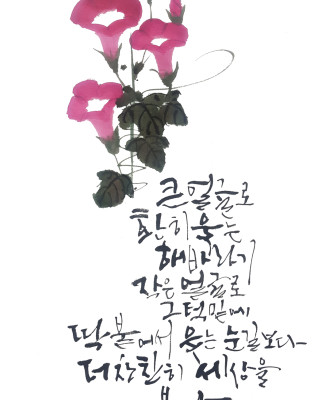 큰 얼굴로
환히 웃는
해바라기
작은 얼굴로
구석밑에
딱 붙에서 웃는 눈길보다
더 찬찬히 세상을